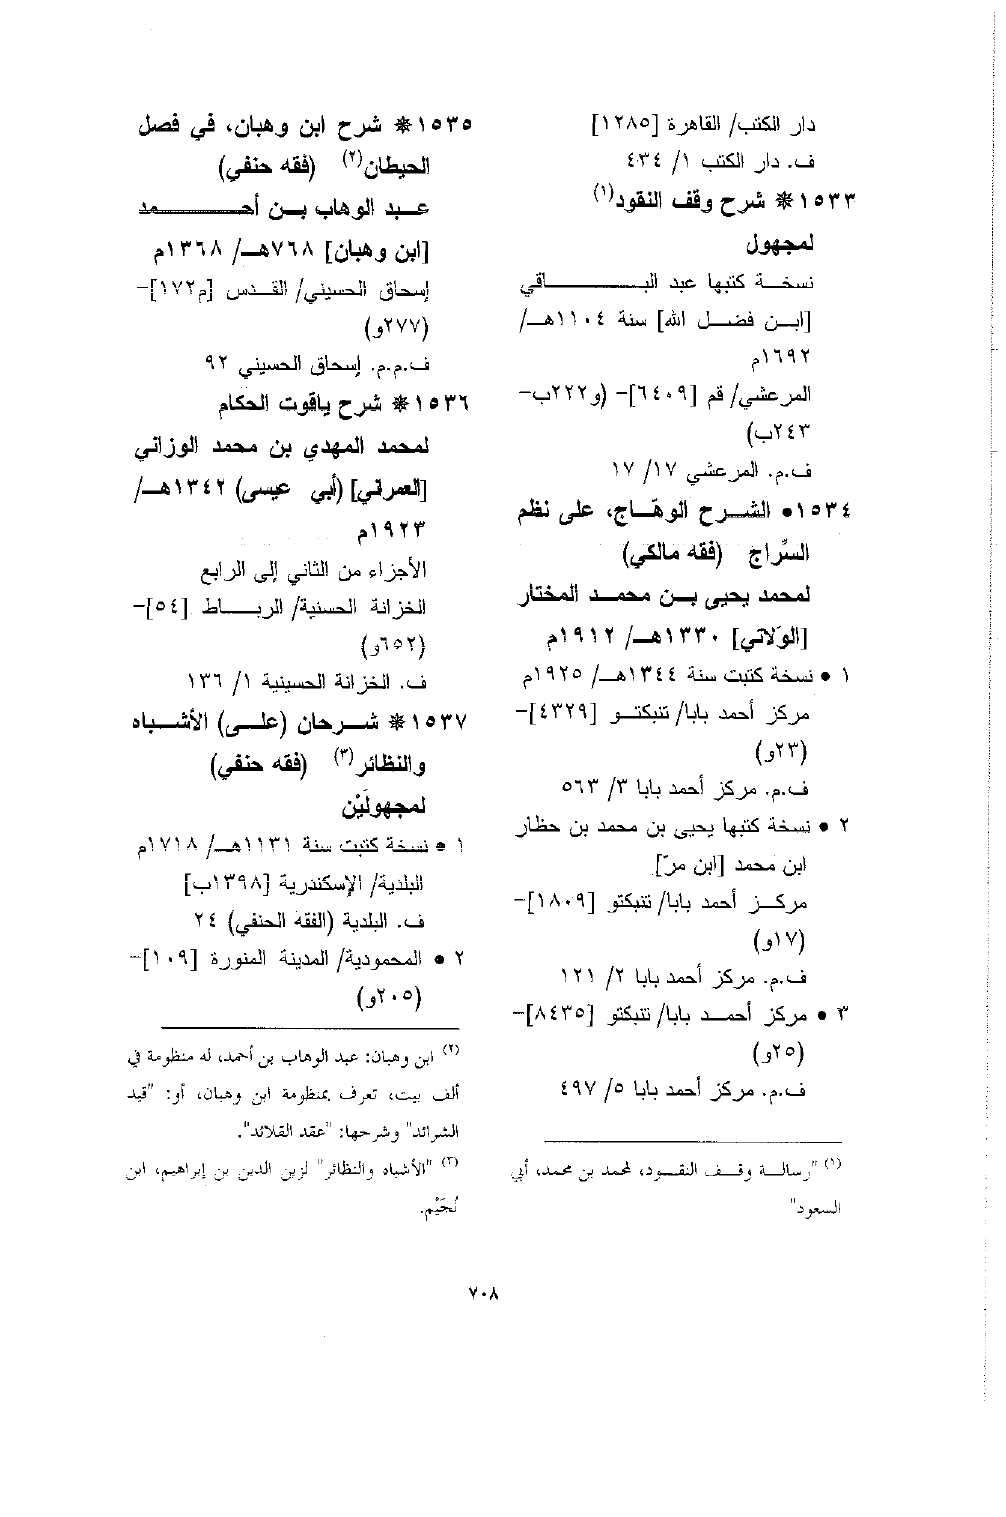 دار الكتب/ القاهرة [١٢٨٥]
ف. دار الكتب ١/ ٤٣٤
١٥٣٣* شرح وقف النقود(١)
لمجهول
نسخة كتبها عبد الباقي
[ابن فضل الله] سنة ١١٠٤هـ/
١٦٩٢م
المرعشي/ قم [٦٤٠٩]- (و٢٢٢ب-
٢٤٣ب)
ف.م. المرعشي ١٧/ ١٧
١٥٣٤• الشرح الوهّاج، على نظم
السِّراج (فقه مالكي)
لمحمد يحيى بن محمد المختار
[الوَلاتي] ١٣٣٠هـ/ ١٩١٢م
١ • نسخة كتبت سنة ١٣٤٤هـ/ ١٩٢٥م
مركز أحمد بابا/ تنبكتو [٤٣٢٩]-
(٢٣و)
ف.م. مركز أحمد بابا ٣/ ٥٦٣
٢ • نسخة كتبها يحيى بن محمد بن حظار
ابن محمد [ابن مرّ].
مركز أحمد بابا/ تنبكتو [١٨٠٩]-
(١٧و)
ف.م. مركز أحمد بابا ٢/ ١٢١
٣ • مركز أحمد بابا/ تنبكتو [٨٤٣٥]-
(٢٥و)
ف.م. مركز أحمد بابا ٥/ ٤٩٧
(١) "رسالة وقف النقود، لمحمد بن محمد، أبي
السعود"
١٥٣٥* شرح ابن وهبان، في فصل
الحيطان(٢) (فقه حنفي)
عبد الوهاب بن أحمد
[ابن وهبان] ٧٦٨هـ/ ١٣٦٨م
إسحاق الحسيني/ القدس [م١٧٢]-
(٢٧٧و)
ف.م.م. إسحاق الحسيني ٩٢
١٥٣٦* شرح ياقوت الحكام
لمحمد المهدي بن محمد الوزاني
[العمراني] (أبي عيسى) ١٣٤٢هـ/
١٩٢٣م
الأجزاء من الثاني إلى الرابع
الخزانة الحسنية/ الرباط [٥٤]-
(٦٥٢و)
ف. الخزانة الحسينية ١/ ١٣٦
١٥٣٧* شرحان (على) الأشباه
والنظائر(٣) (فقه حنفي)
لمجهولَيْن
١ • نسخة كتبت سنة ١١٣١هـ/ ١٧١٨م
البلدية/ الإسكندرية [١٣٩٨ب]
ف. البلدية (الفقه الحنفي) ٢٤
٢ • المحمودية/ المدينة المنورة [١٠٩]-
(٢٠٥و)
(٢) ابن وهبان: عبد الوهاب بن أحمد، له منظومة في
ألف بيت، تعرف بمنظومة ابن وهبان، أو: "قيد
الشرائد" وشرحها: "عقد القلائد".
(٣) "الأشباه والنظائر" لزين الدين بن إبراهيم، ابن
نُجَيْم.
٧٠٨